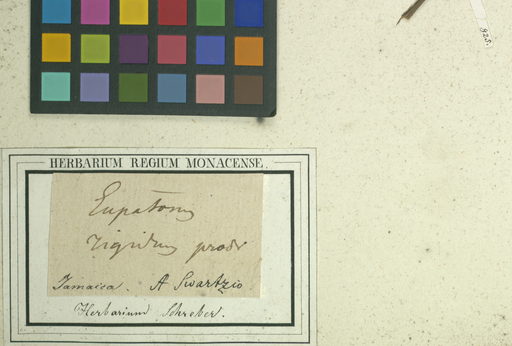 925.
HERBARIUM REGIUM MONACENSE.
Eupatorium
rigidum prodr
Jamaica. A Swartzio
Herbarium Schreber.